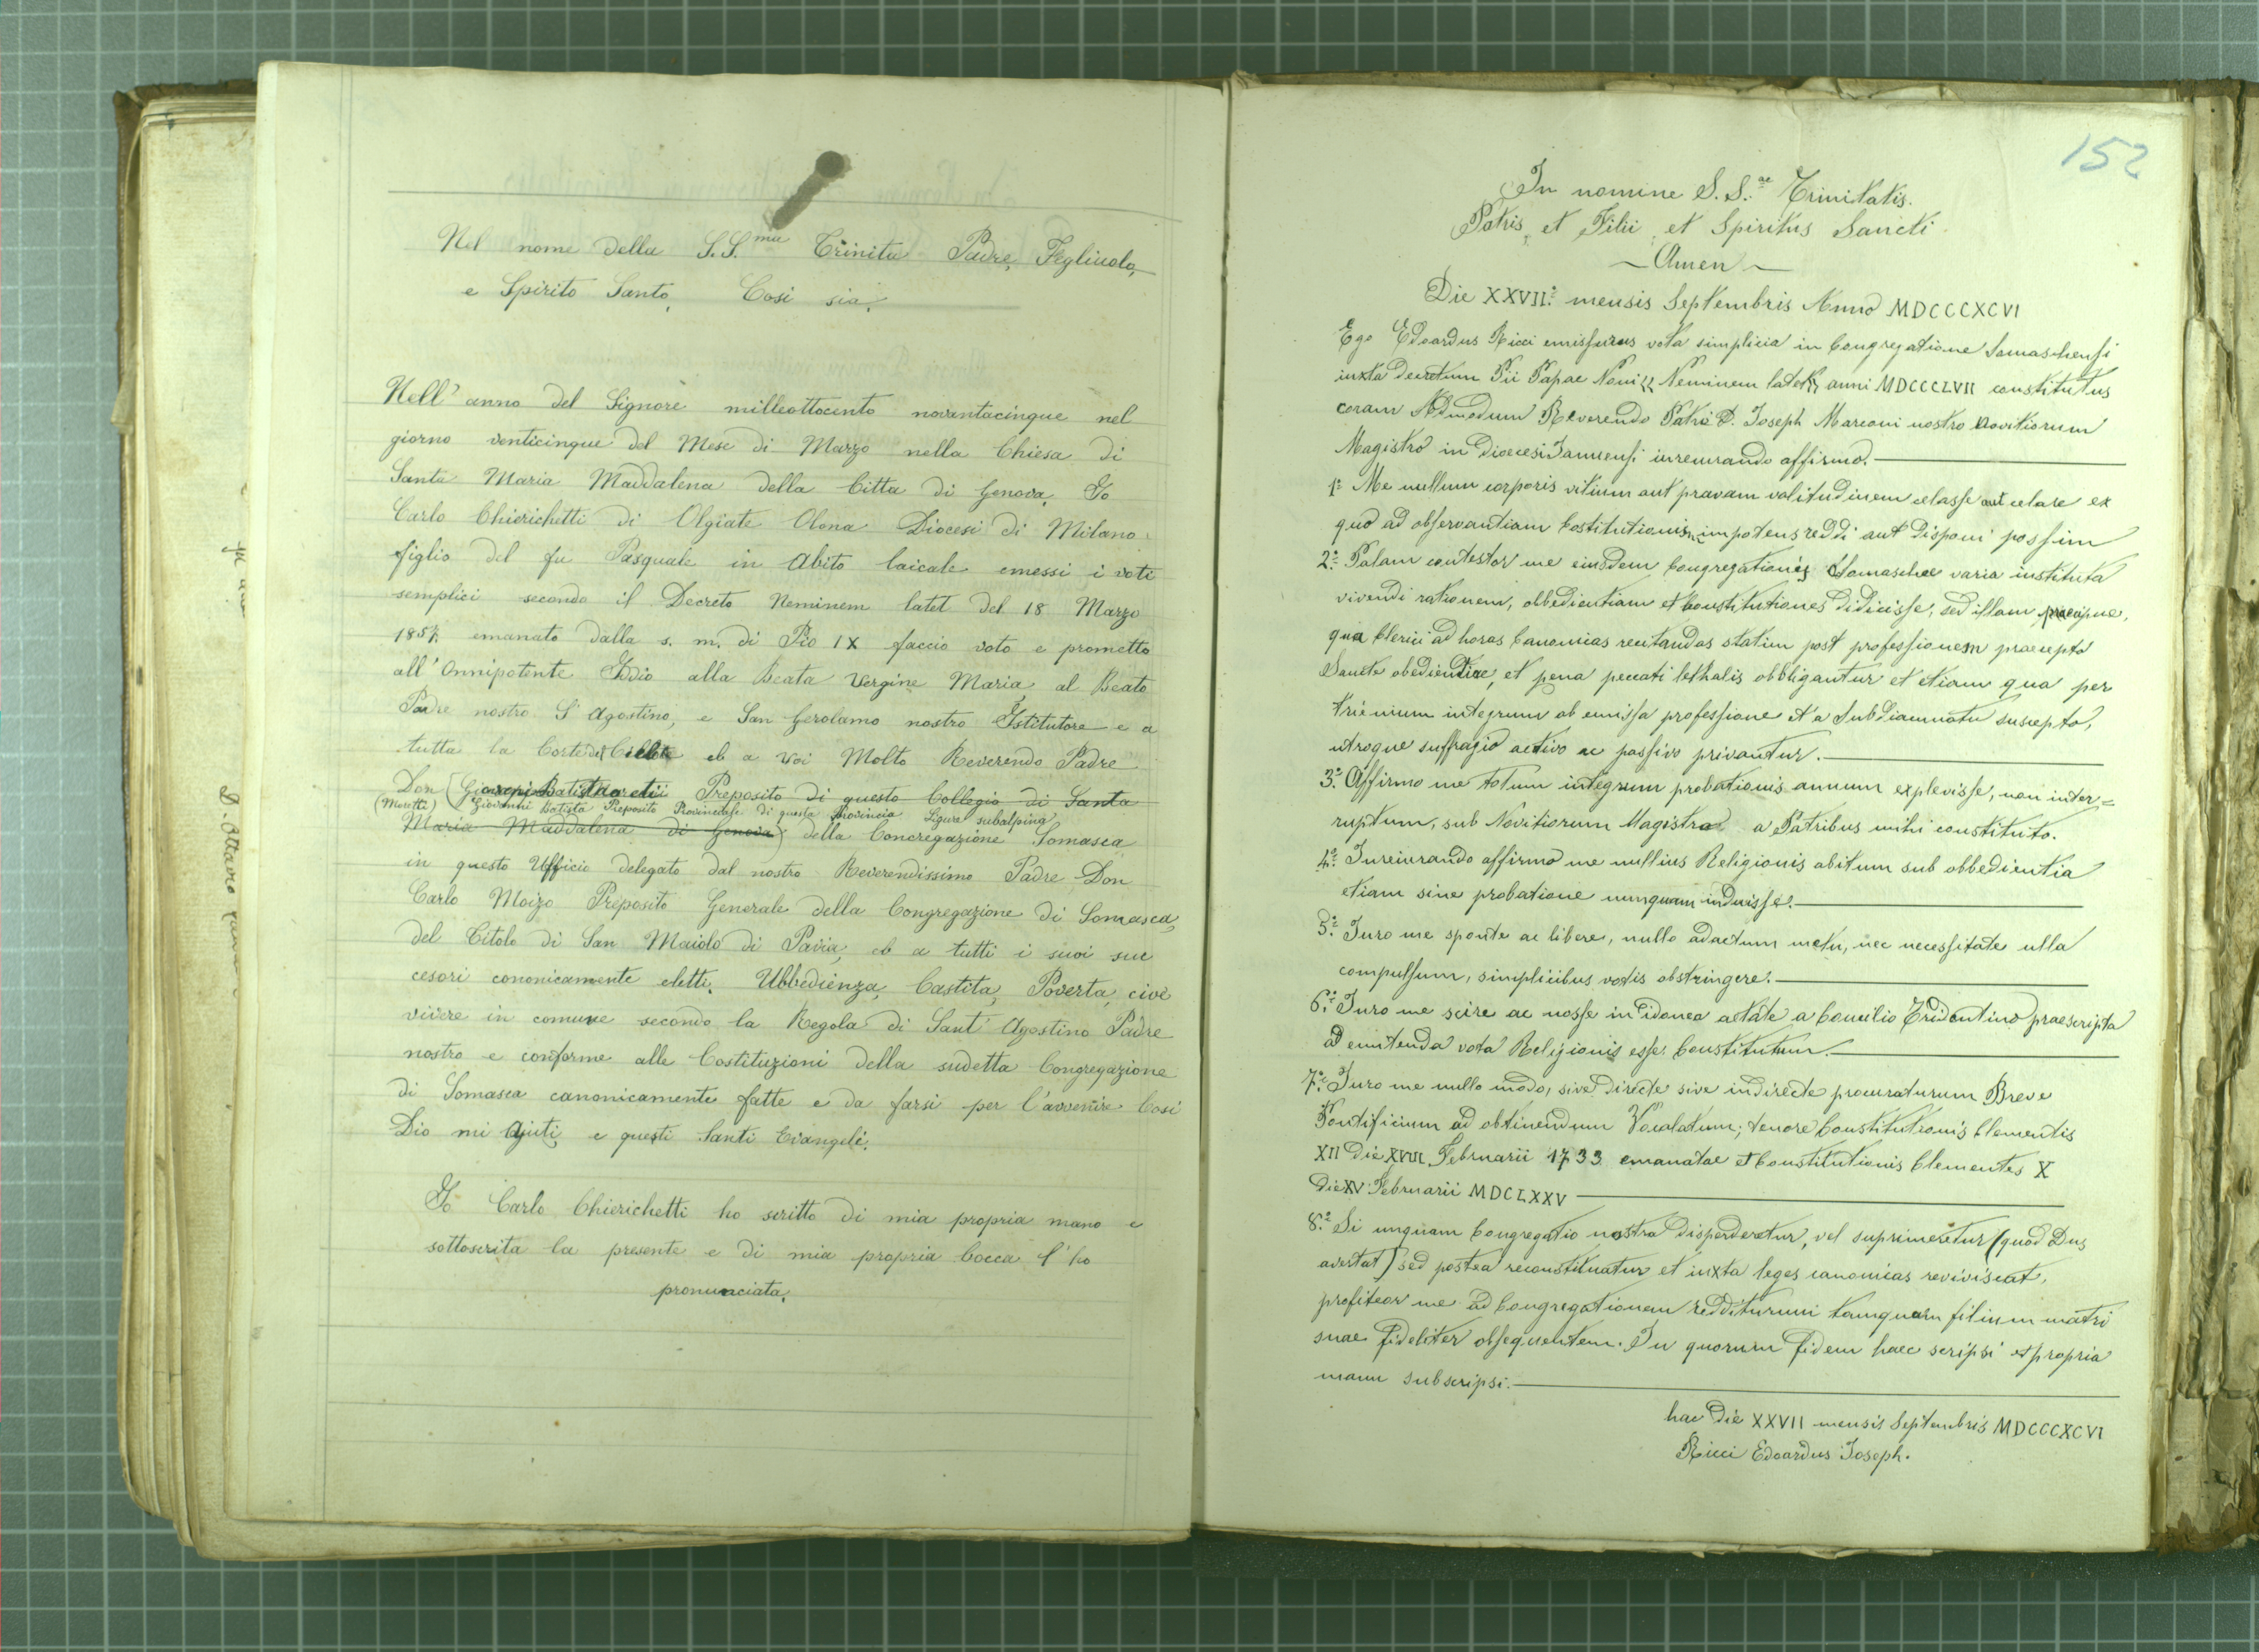 Nel nome della S.S.ma Trinita Padre, Figliuolo,
e Spirito Santo, Cosi sia.
Nell' anno del Signore milleottocento novantacinque nel
giorno venticinque del Mese di Marzo nella Chiesa di
Santa Maria Maddalena della Citta di Genova, Io
Carlo Chierichetti di Olgiate Olona Diocesi di Milano
figlio del fu Pasquale in Abito laicale emessi i voti
semplici secondo il Decreto Neminem latet del 18 Marzo
1857 emanato dalla s. m. di Pio IX faccio voto e prometto
all' Onnipotente Iddio alla Beata Vergine Maria, al Beato
Padre nostro S. Agostino, e San Gerolamo nostro Istitutore e a
tutta la Corte del eb a Voi Molto Reverendo Padre
Don Preposito di questo Collegio di Santa
(Moretti) Giovanni Batista Preposito Provinciale di questa Provincia Ligure subalpina
Maria Maddalena di Genova) della Concregazione Somasca
in questo Ufficio delegato dal nostro Reverendissimo Padre Don
Carlo Moizo Preposito Generale della Congregazione di Somasca,
del Citolo di San Maiolo di Pavia, eb a tutti i suoi suc
cesori cononicamente eletti, Ubbedienza, Castita, Poverta, cive
vivere in comune secondo la Regola di Sant' Agostino Padre
nostro e conforme alle Costituzioni della sudetta Congregazione
di Somasca canonicamente fatte e da farsi per l'avvenire Cosi
Dio mi ajuti, e questi Santi Evangeli.
Io Carlo Chierichetti ho scritto di mia propria mano e
sottoscrita la presente e di mia propria bocca l' ho
pronunciata.
D. Ottavio
152
In nomine S.S.ae Trinitatis.
Patris, et Filii, et Spiritus Sancti.
~ Amen ~
Die XXVII.° mensis Septembris Anno MDCCCXCVI
Ego Edoardus Ricci emissurus vota simplicia in Congregatione Somaschensi
iuxta decretum Pii Papae Noni << Neminem latet >> anni MDCCCLVII constitutus
coram Admodum Reverendo Patre D. Joseph Marconi nostro Novitiorum
Magistro in Dioecesi Januensi iureiurando affirmo.
1.° Me nullum corporis vitium aut pravam valitudinem celasse aut celare ex
quo ad observantiam Costitutionis impotens reddi aut disponi possim
2.° Palam contestor me eiusdem Congregationis Somaschae varia instituta
vivendi rationem, obbedientiam et Constitutiones didicisse, sed illam praecipue,
qua Clerici ad horas Canonicas recitandas statim post professionem praecepto
Sancte obedientiae, et pena peccati lethalis obbligantur et etiam qua per
trienium integrum ab emissa professione et a Subdiaconatu suscepto,
utroque suffragio activo ac passivo privantur.
3.° Affirmo me totum integrum probationis annum explevisse, non inter=
ruptum, sub Novitiorum Magistro a Patribus mihi constituto.
4.° Iureiurando affirmo me nullius Religionis abitum sub obbedientia
etiam sine probatione nunquam induisse.
5.° Iuro me sponte ac libere, nullo adactum metu, nec necessitate ulla
compulsum, simplicibus votis obstringere.
6.° Iuro me scire ac nosse in idonea aetate a Concilio Tridentino praescripta
ad emitenda vota Religionis esse Constitutum.
7.° Iuro me nullo modo, sive directe sive indirecte procuraturum Breve
Pontificium ad obtinendum Vocalatum; tenore Constitutionis Clementis
XII die XVIII Februarii 1733 emanatae et Constitutionis Clementes X
die XV Februarii MDCLXXV
8.° Si unquam Congregatio nostra disperderetur, vel suprimeretur (quod Dus
avertat) sed postea reconstituatur et iuxta leges canonicas reviviscat,
profiteor me ad Congregationem redditurum tamquam filium matri
suae fideliter obsequentem. In quorum fidem haec scripsi et propria
manu subscripsi.
hac die XXVII mensis Septembris MDCCCXCVI
Ricci Edoardus Joseph.